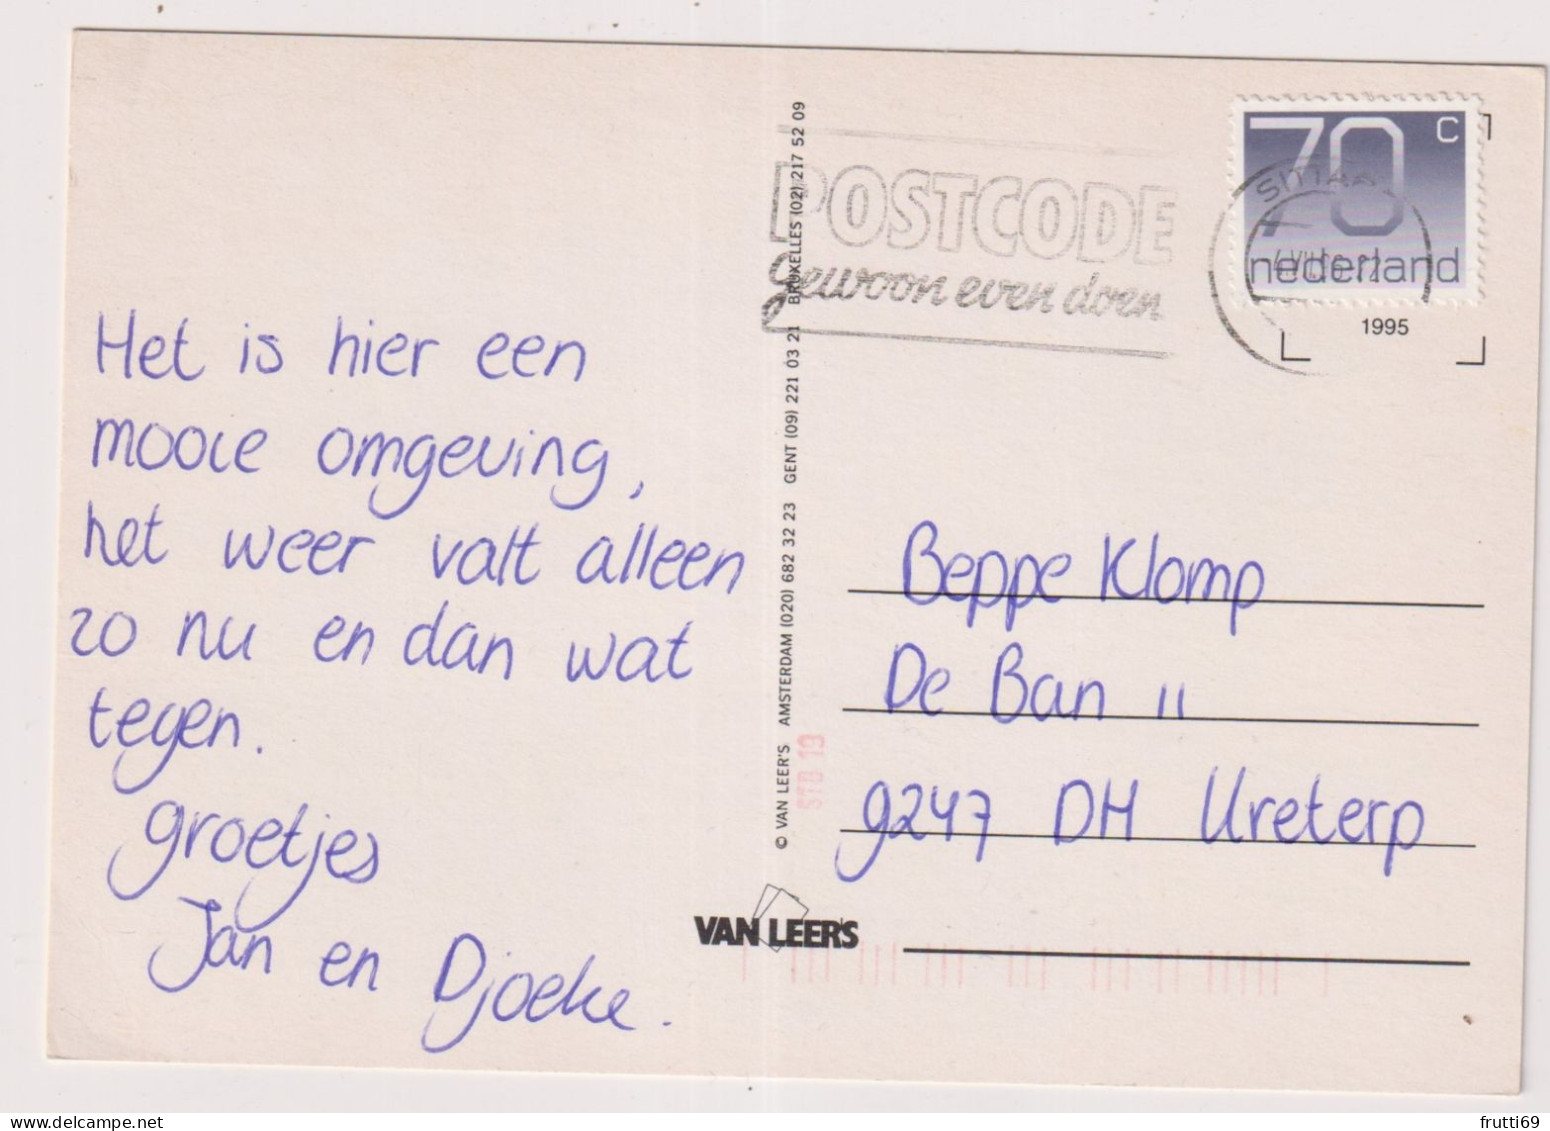 Het is hier een
mooie omgeving,
het weer valt alleen
zo nu en dan wat
tegen.
groetjes
Jan en Djoeke.
© VAN LEER'S AMSTERDAM (020) 682 32 23 GENT (09) 221 03 21 BRUXELLES (02) 217 52 09
STB 19
VAN LEER'S
POSTCODE
gewoon even doen
70 c
nederland
SITTARD
1995
Beppe Klomp
De Ban 11
9247 DH Ureterp
frutti69